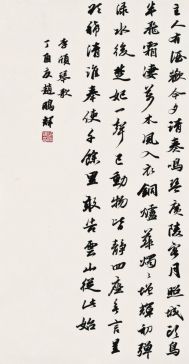 主人有酒歡今夕請奏鳴琴廣陵客月照城頭烏
半飛霜淒萬木風入衣銅爐華燭燭增輝初彈
淥水後楚妃一聲已動物皆靜四座無言星
欲稀清淮奉使千餘里敢告雲山從此始
李頎琴歌
丁酉夏趙鵬